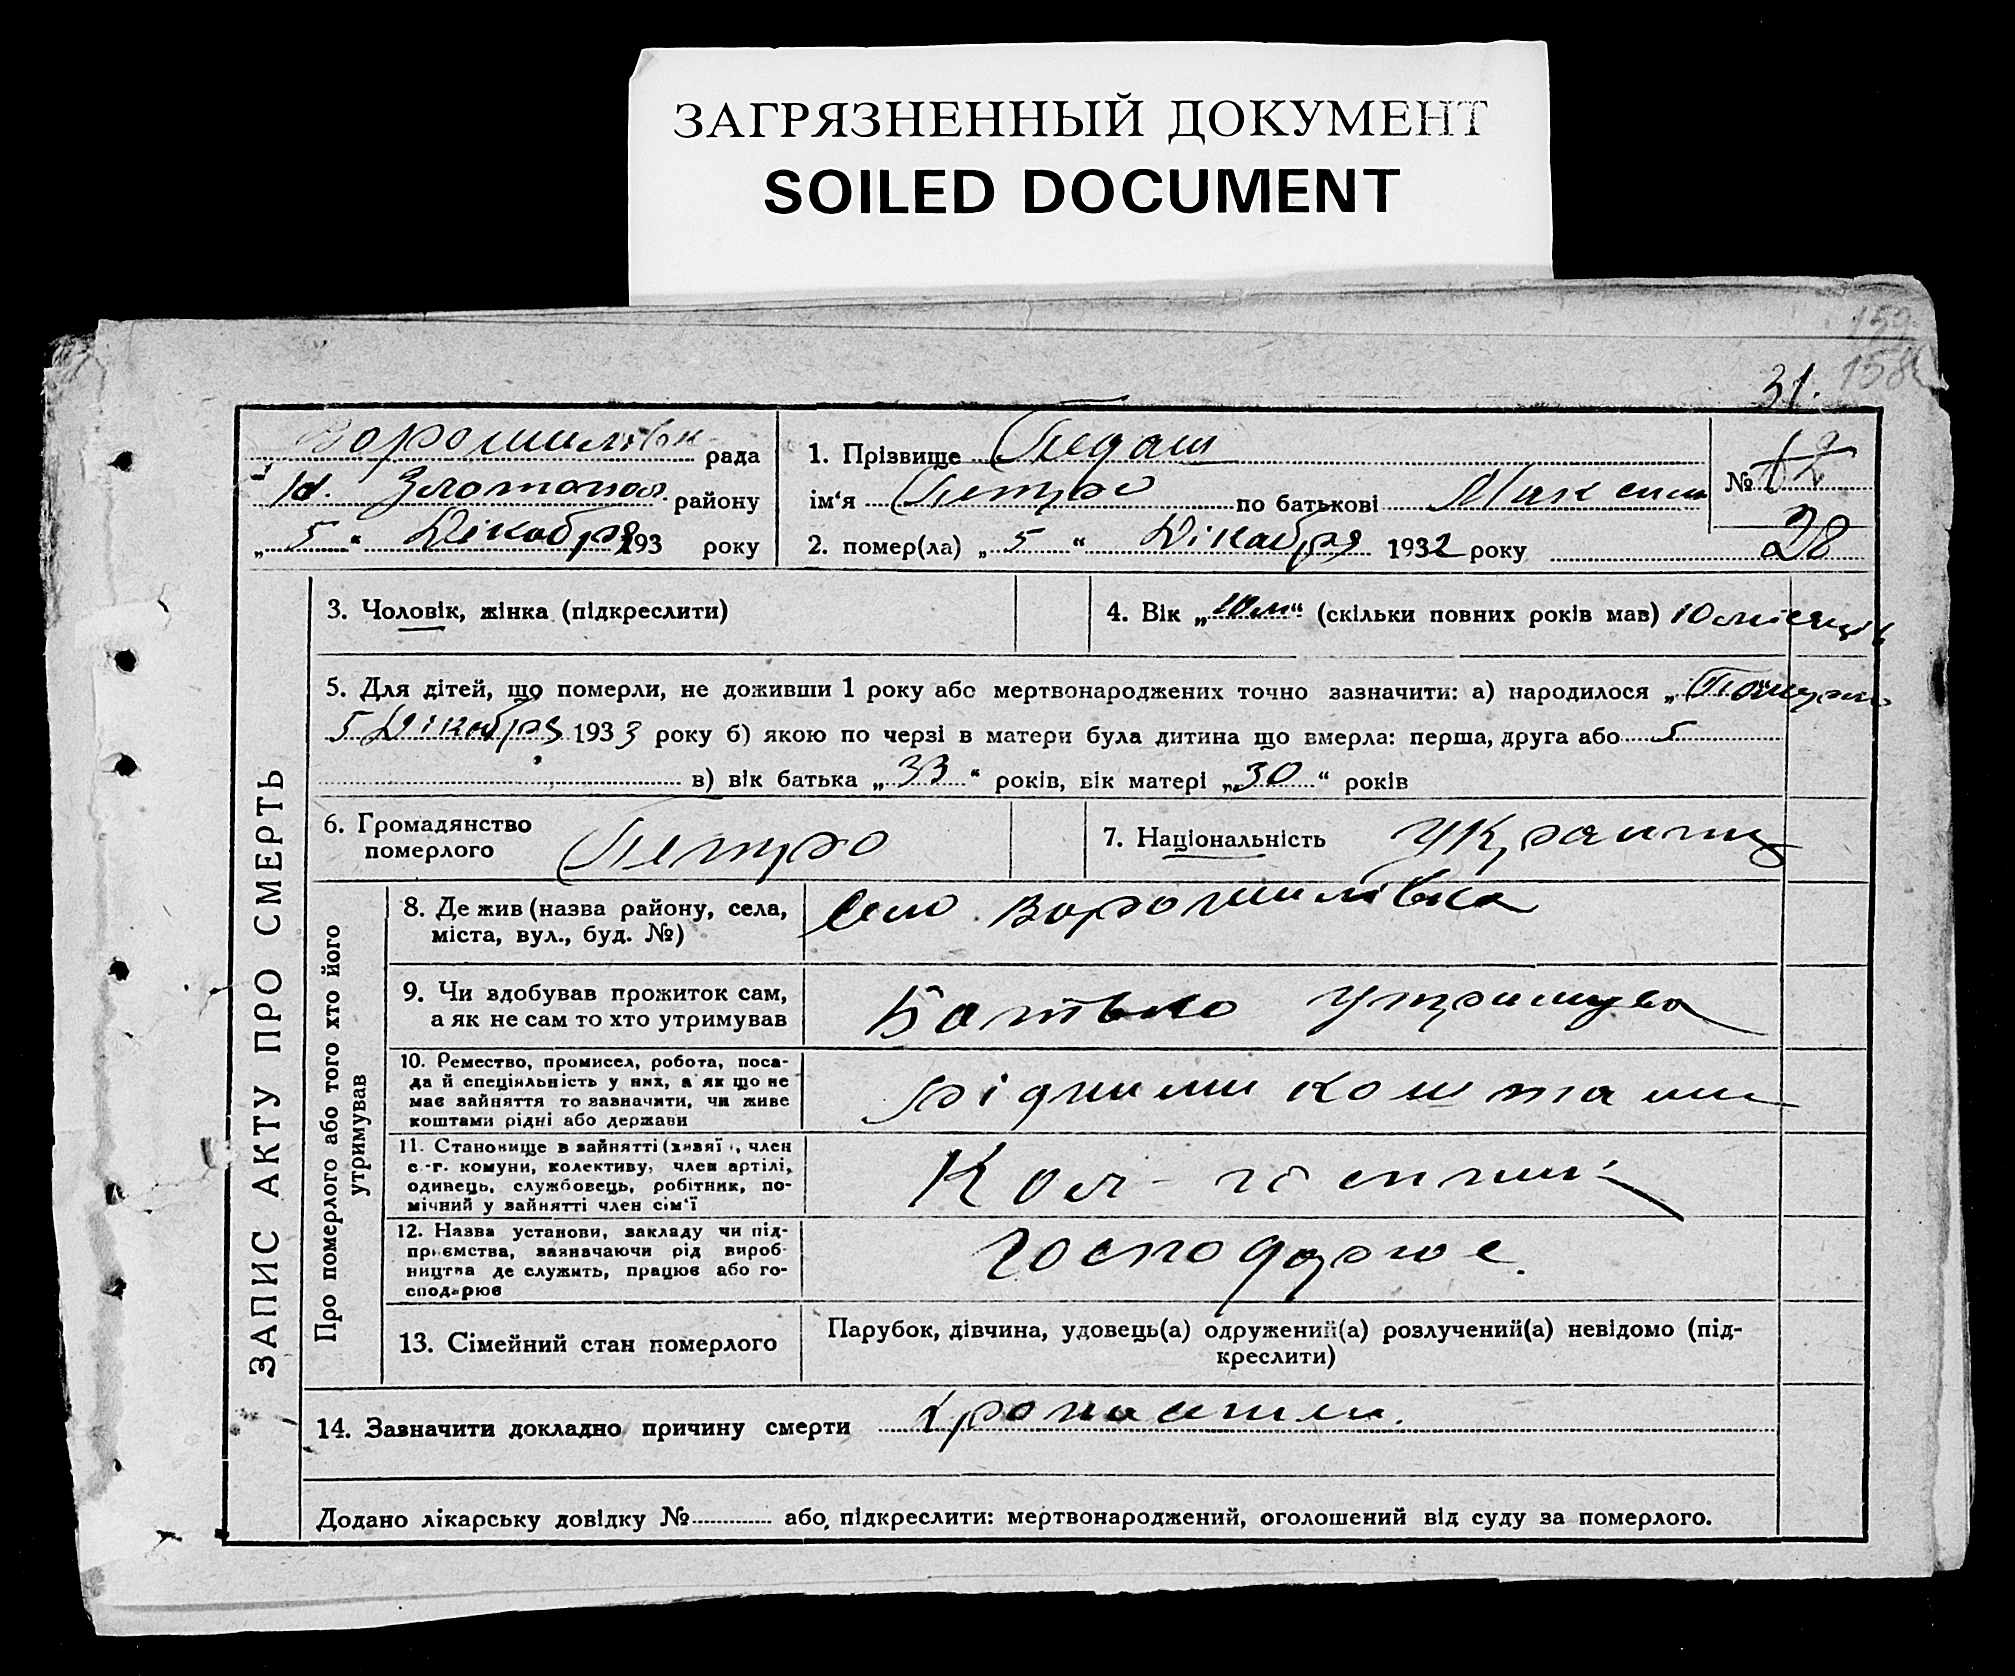 ЗАГРЯЗНЕННЫЙ ДОКУМЕНТ
SOILED DOCUMENT
159
158
31.
Ворошилівк рада
1. Прізвище Педаш
№ 12
Золотопол. району
ім'я Петро по батькові Максим
„ 5 “ Дікабря 193 року
2. помер(ла) „ 5 “ Дікабря 1932 року
28
3. Чоловік, жінка (підкреслити)
4. Вік „10 м“ (скільки повних років мав) 10 місяців
5. Для дітей, що померли, не доживши 1 року або мертвонароджених точно зазначити: а) народилося „
5 Дікабря 1933 року б) якою по черзі в матери була дитина що вмерла: перша, друга або 5
в) вік батька „ 33 “ років, вік матері „ 30 “ років
6. Громадянство
померлого
Петро
7. Національність Украинц
ЗАПИС АКТУ ПРО СМЕРТЬ
Про померлого або того хто його
утримував
8. Де жив (назва району, села,
міста, вул., буд. №)
Село Ворошилівка
9. Чи здобував прожиток сам,
а як не сам то хто утримував
Батько утримува
10. Ремество, промисел, робота, поса-
да й спеціяльність у них, а як що не
має зайняття то зазначити, чи живе
коштами рідні або держави
рідними коштами
11. Становище в зайнятті (хазяї , член
с.-г. комуни, колективу, член артілі,
одинець, службовець, робітник, по-
мічний у зайнятті член сім'ї
12. Назва установи, закладу чи під-
приємства, зазначаючи рід вироб-
ництва де служить, працює або го-
сподарює
господарює.
13. Сімейний стан померлого
Парубок, дівчина, удовець(а) одружений(а) розлучений(а) невідомо (під-
креслити)
14. Зазначити докладно причину смерти
Додано лікарську довідку № або, підкреслити: мертвонароджений, оголошений від суду за померлого.